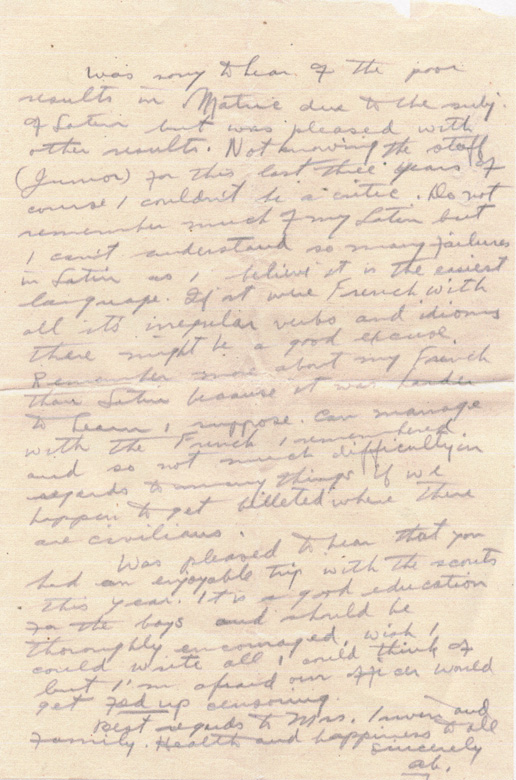 Was sorry to hear of the poor
results in Matric due to the subj.
of Latin but was pleased with
other results. Not knowing the staff
(Junior) for this last three years of
course I couldn't be a critic. Do not
remember much of my Latin but
I can't understand so many failures
in Latin as I believe it is the easiest
language. If it were French with
all its irregular verbs and idioms
there might be a good excuse.
Remember more about my French
than Latin because it was harder
to learn I suppose. Can manage
with the French I remembered
and so not much difficulty in
regards to many things if we
happen to get billeted where there
are civilians.
Was pleased to hear that you
had an enjoyable trip with the scouts
this year. It is a good education
for the boys and should be
thoroughly encouraged, wish I
could write all I could think of
but I'm afraid our officer would
get fed up censoring.
Best regards to Mrs. Irwin and
family. Health and happiness to all
Sincerely
ab.